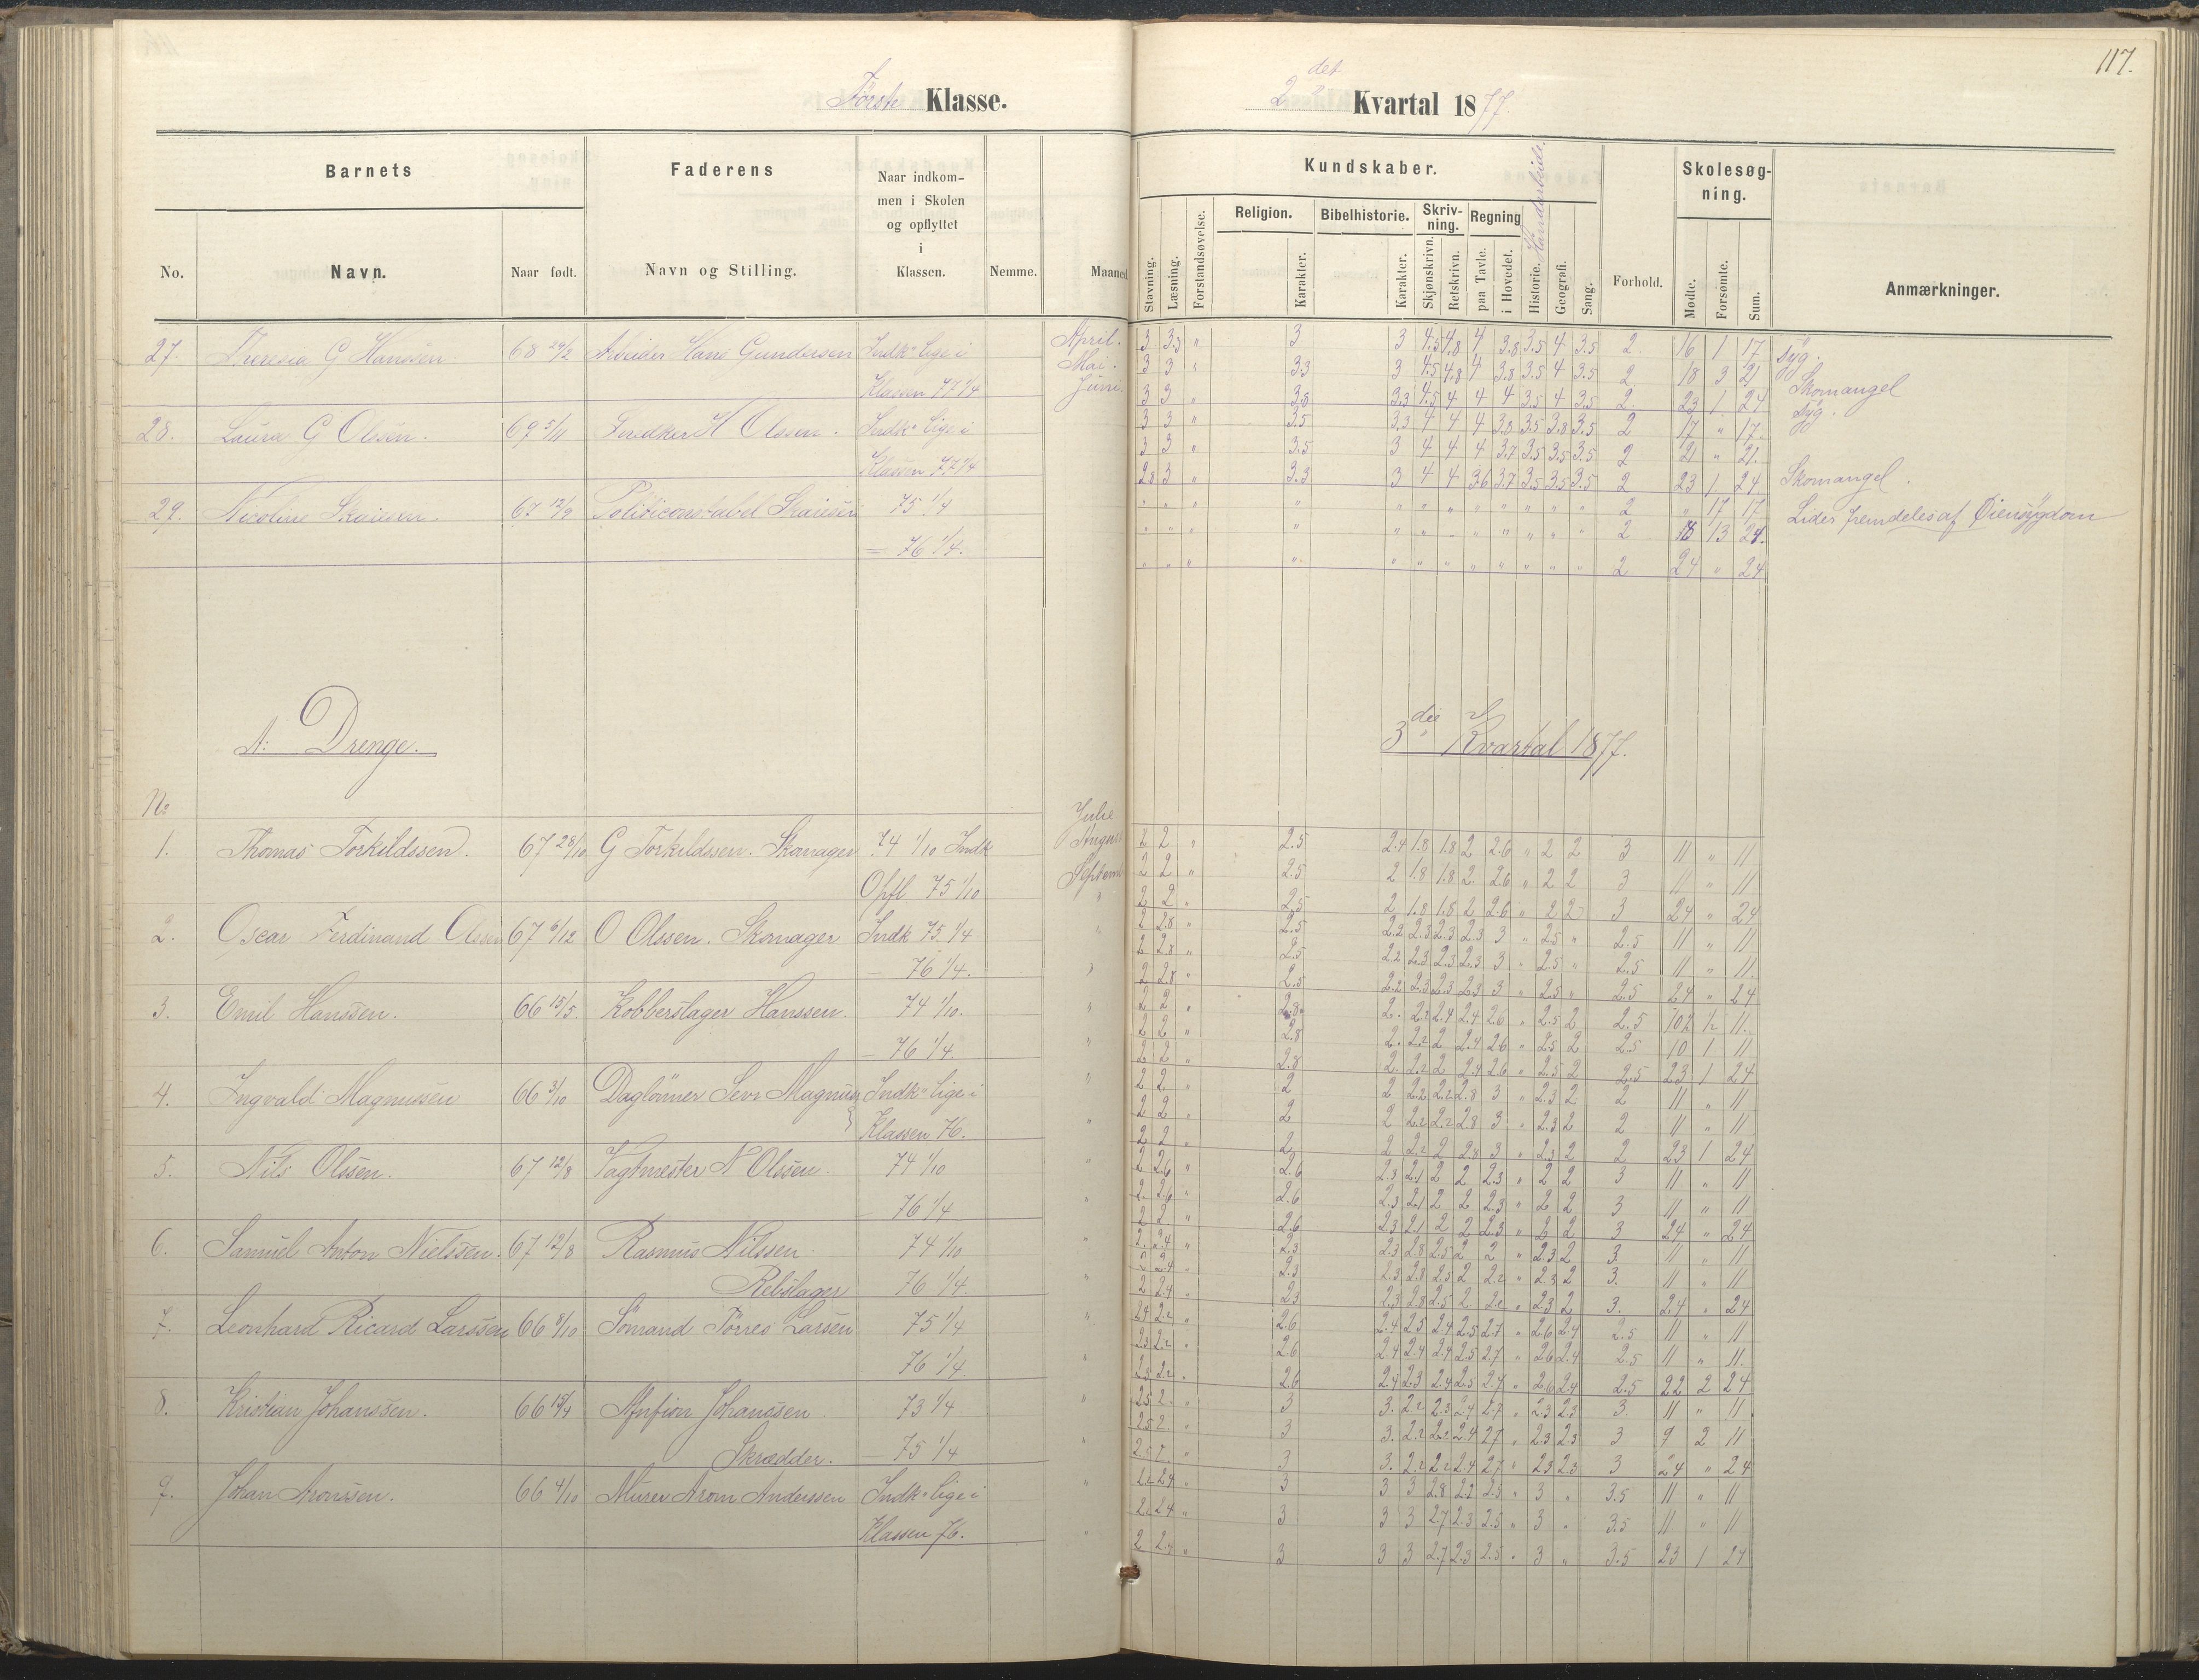 117.
Første Klasse.
2det Kvartal 1877.
Barnets
Faderens
Naar indkom-
men i Skolen
og opflyttet
i
Klassen.
No.
Navn.
Naar født.
Navn og Stilling.
Nemme.
Maaned
Kundskaber.
Haandarbeide
Skolesøg-
ning.
Stavning.
Læsning.
Forstandsøvelse.
Religion.
Karakter.
Bibelhistorie.
Karakter.
Skriv-
ning.
Skjønskrivn.
Retskrivn.
Regning
paa Tavle.
i Hovedet.
Historie.
Geografi.
Sang.
Forhold.
Mødte.
Forsømte.
Sum.
Anmærkninger.
27. Theresia G Hanssen 68 24/2 Arbeider Hans Gundersen Indk. lige i April. 3 3.3 " 3 3 4.5 4.8 4 3.8 3.5 4 3.5 2. 16 1 17 syg.
Klassen 77 1/4 Mai. 3 3 " 3.3 3 4.5 4.8 4 3.8 3.5 4 3.5 2 18 3 21 Skomangel
Juni 3 3 " 3.8 3.3 4.5 4 4 4 3.5 4 3.5 2 23 1 24 syg.
28. Laura G Olsen. 69 5/11 H Olsen. Indk. lige i 3 3 " 3.5 3.3 4 4 4 3.8 3.5 3.8 3.5 2 17 " 17.
Klassen 77 1/4 3 3 " 3.5 3 4 4 4 3.7 3.5 3.5 3.5 2 21 " 21.
2.8 3 " 3.3 3 4 4 3.6 3.7 3.5 3.5 3.5 2 23 1 24 Skomangel.
29. Nicoline 67 12/9 Politiconstabel 75 1/4 2 " 17 17 Lider fremdeles af Øiensygdom
76 1/4. 2 13 24.
2 24 " 24
A: Drenge.
3die Kvartal 1877.
No
Julie
1. Thomas Torkildssen. 67 28/10 G Torkildssen. Skomager 74 1/10 Indk August 2 2 " 2.5 2.4 1.8 1.8 2 2.6 " 2 2 3 11 " 11
Opfl 75 1/10 Septemb 2 2 " 2.5 2 1.8 1.8 2 2.6 " 2 2 3 11 " 11
2 2 " 2.5 2 1.8 1.8 2 2.6 " 2 2 3 24 " 24
2. Oscar Ferdinand Olssen 67 6/12 O Olssen. Skomager Indk 75. 1/4 2 2.8 " 2.5 2.2 2.3 2.3 2.3 3 " 2.5 " 2.5 11 " 11
76 1/4. 2 2.8 " 2.5 2.2 2.3 2.3 2.3 3 " 2.5 " 2.5 11 " 11.
2 2.8 " 2.5 2.2 2.3 2.3 2.3 3 " 2.5 " 2.5 24 " 24
3. Emil Hanssen. 66 15/5. Kobberslager Hanssen. 74 1/10. 2 2 " 2.8 2. 2.2 2.4 2.4 2.6 " 2.5 2 2.5 10½ ½ 11.
76 1/4. 2 2 " 2.8 2. 2.2 2 2.4 2.6 " 2.5 2 2.5 10 1 11
2 2 " 2.8 2. 2.2 2 2.4 2.6 " 2.5 2 2.5 23 1 24
4. Ingvald Magnussen 66 3/10 Daglönner Sevr Magnus Indk. lige i 2 2 " 2 2 2.2 2.2 2.8 3 " 2.3 2 2 11 " 11
Klassen 76. 2 2 " 2 2 2.2 2.2 2.8 3 " 2.3 2 2 11 " 11
2 2 " 2 2 2.2 2 2.8 3 " 2.3 2 2 23 1 24
5. Nils Olssen. 67 12/8 Vagtmester N Olssen. 74 1/10 2 2.6 " 2.6 2.3 2.1 2 2 2.3 " 2 2 3 11 " 11
76 1/4 2 2.6 " 2.6 2.3 2.1 2 2 2.3 " 2 2 3 11 " 11
2 2 " 2.6 2.3 2.1 2 2 2.3 " 2 2 3 24 " 24
6. Samuel Anton Nielssen. 67 12/8 Rasmus Nilssen 74 1/10 2 2.4 " 2.3 2.3 2.8 2.5 2 2 " 2.3 2 3. 11 " 11
Rebslager 76 1/4. 2 2.4 " 2.3 2.3 2.8 2.5 2 2.2 " 2.3 2 3. 11 " 11
2 2.4 " 2.3 2.3 2.8 2.5 2 2.2 " 2.3 2 3. 24 " 24
7. Leonhard Ricard Larssen 66 8/10 Sömand Törres Larsen 75 1/4 2.6 2.4 2.5 2.4 2.5 2.7 " 2.6 2.4 2.5 11 " 11
76 1/4. 2.6 2.4 2.4 2.4 2.5 2.7 " 2.6 2.4 2.5 11 " 11.
2.6 2.4 2.3 2.4 2.5 2.7 " 2.6 2.4 2.5 22 2 24
8. Kristian Johanssen. 66 15/4 Johanssen 73 1/4 2.5 2. " 3 3. 2.2 2.3 2.4 2.7 " 2.3 2.3 3. 11 " 11
Skrædder. 75 1/4 2.5 2. " 3 3. 2.2 2.2 2.4 2.7 " 2.3 2.3 3 9 2 11
2.5 2. " 3 3. 2.2 2.2 2.4 2.7 " 2.3 2.3 3 24 " 24
9. Johan Aronssen. 66 4/10 Murer Aron Anderssen Indk. lige i 2.4 " 3 3 3 2.8 2.2 2.5 " 3 " 3.5 11 " 11
Klassen 76. 2.4 " 3 3 3 2.7 2.3 2.5 " 3 " 3.5 11 " 11
2 2.4 " 3 3 3 2.7 2.3 2.5 " 3 " 3.5 23 1 24